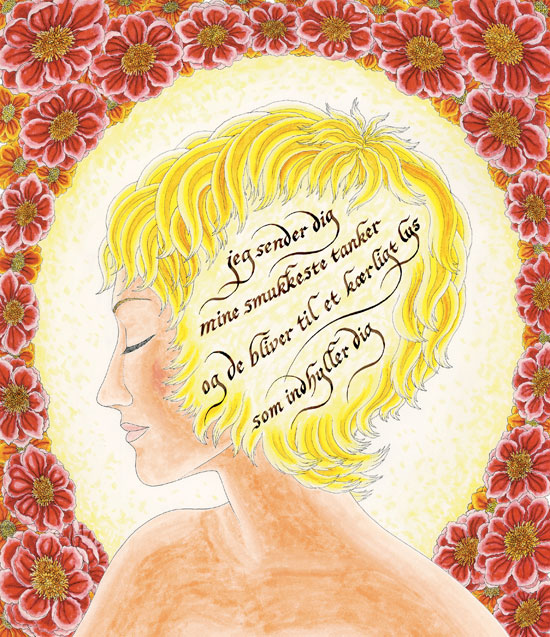 jeg sender dig
mine smukkeste tanker
og de bliver til et kærligt lys
som indhyller dig